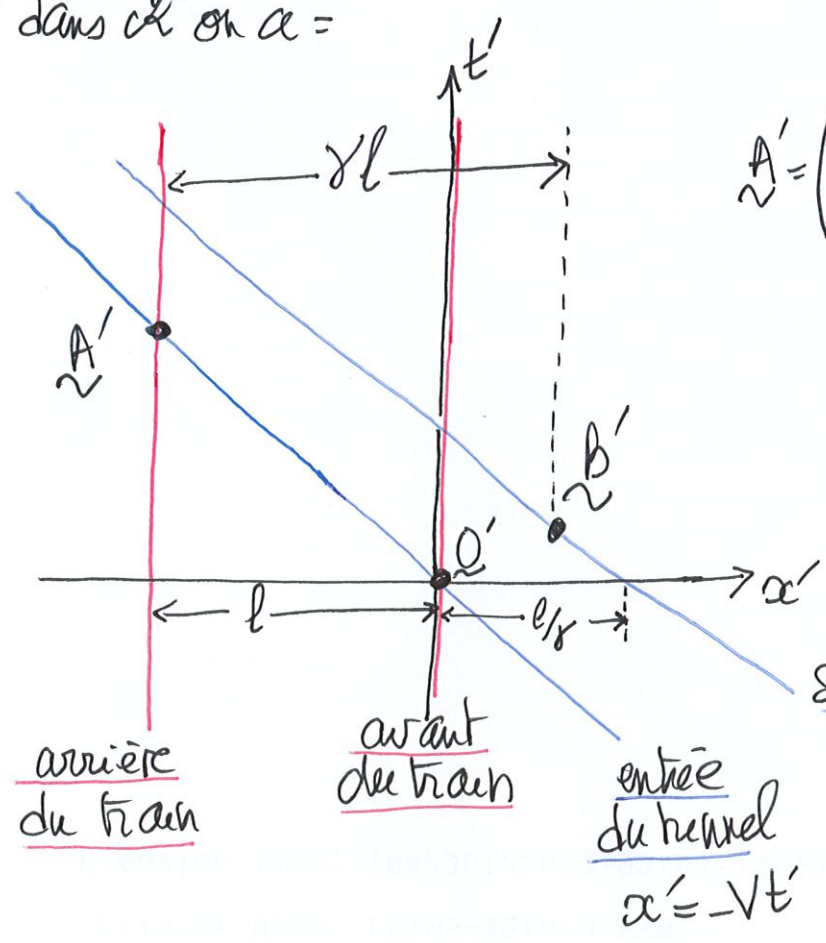 dans R on a =
t'
γl
A' = (
A'
B'
O'
x'
l
l/γ
s
arrière
du train
avant
du train
entrée
du tunnel
x' = -Vt'